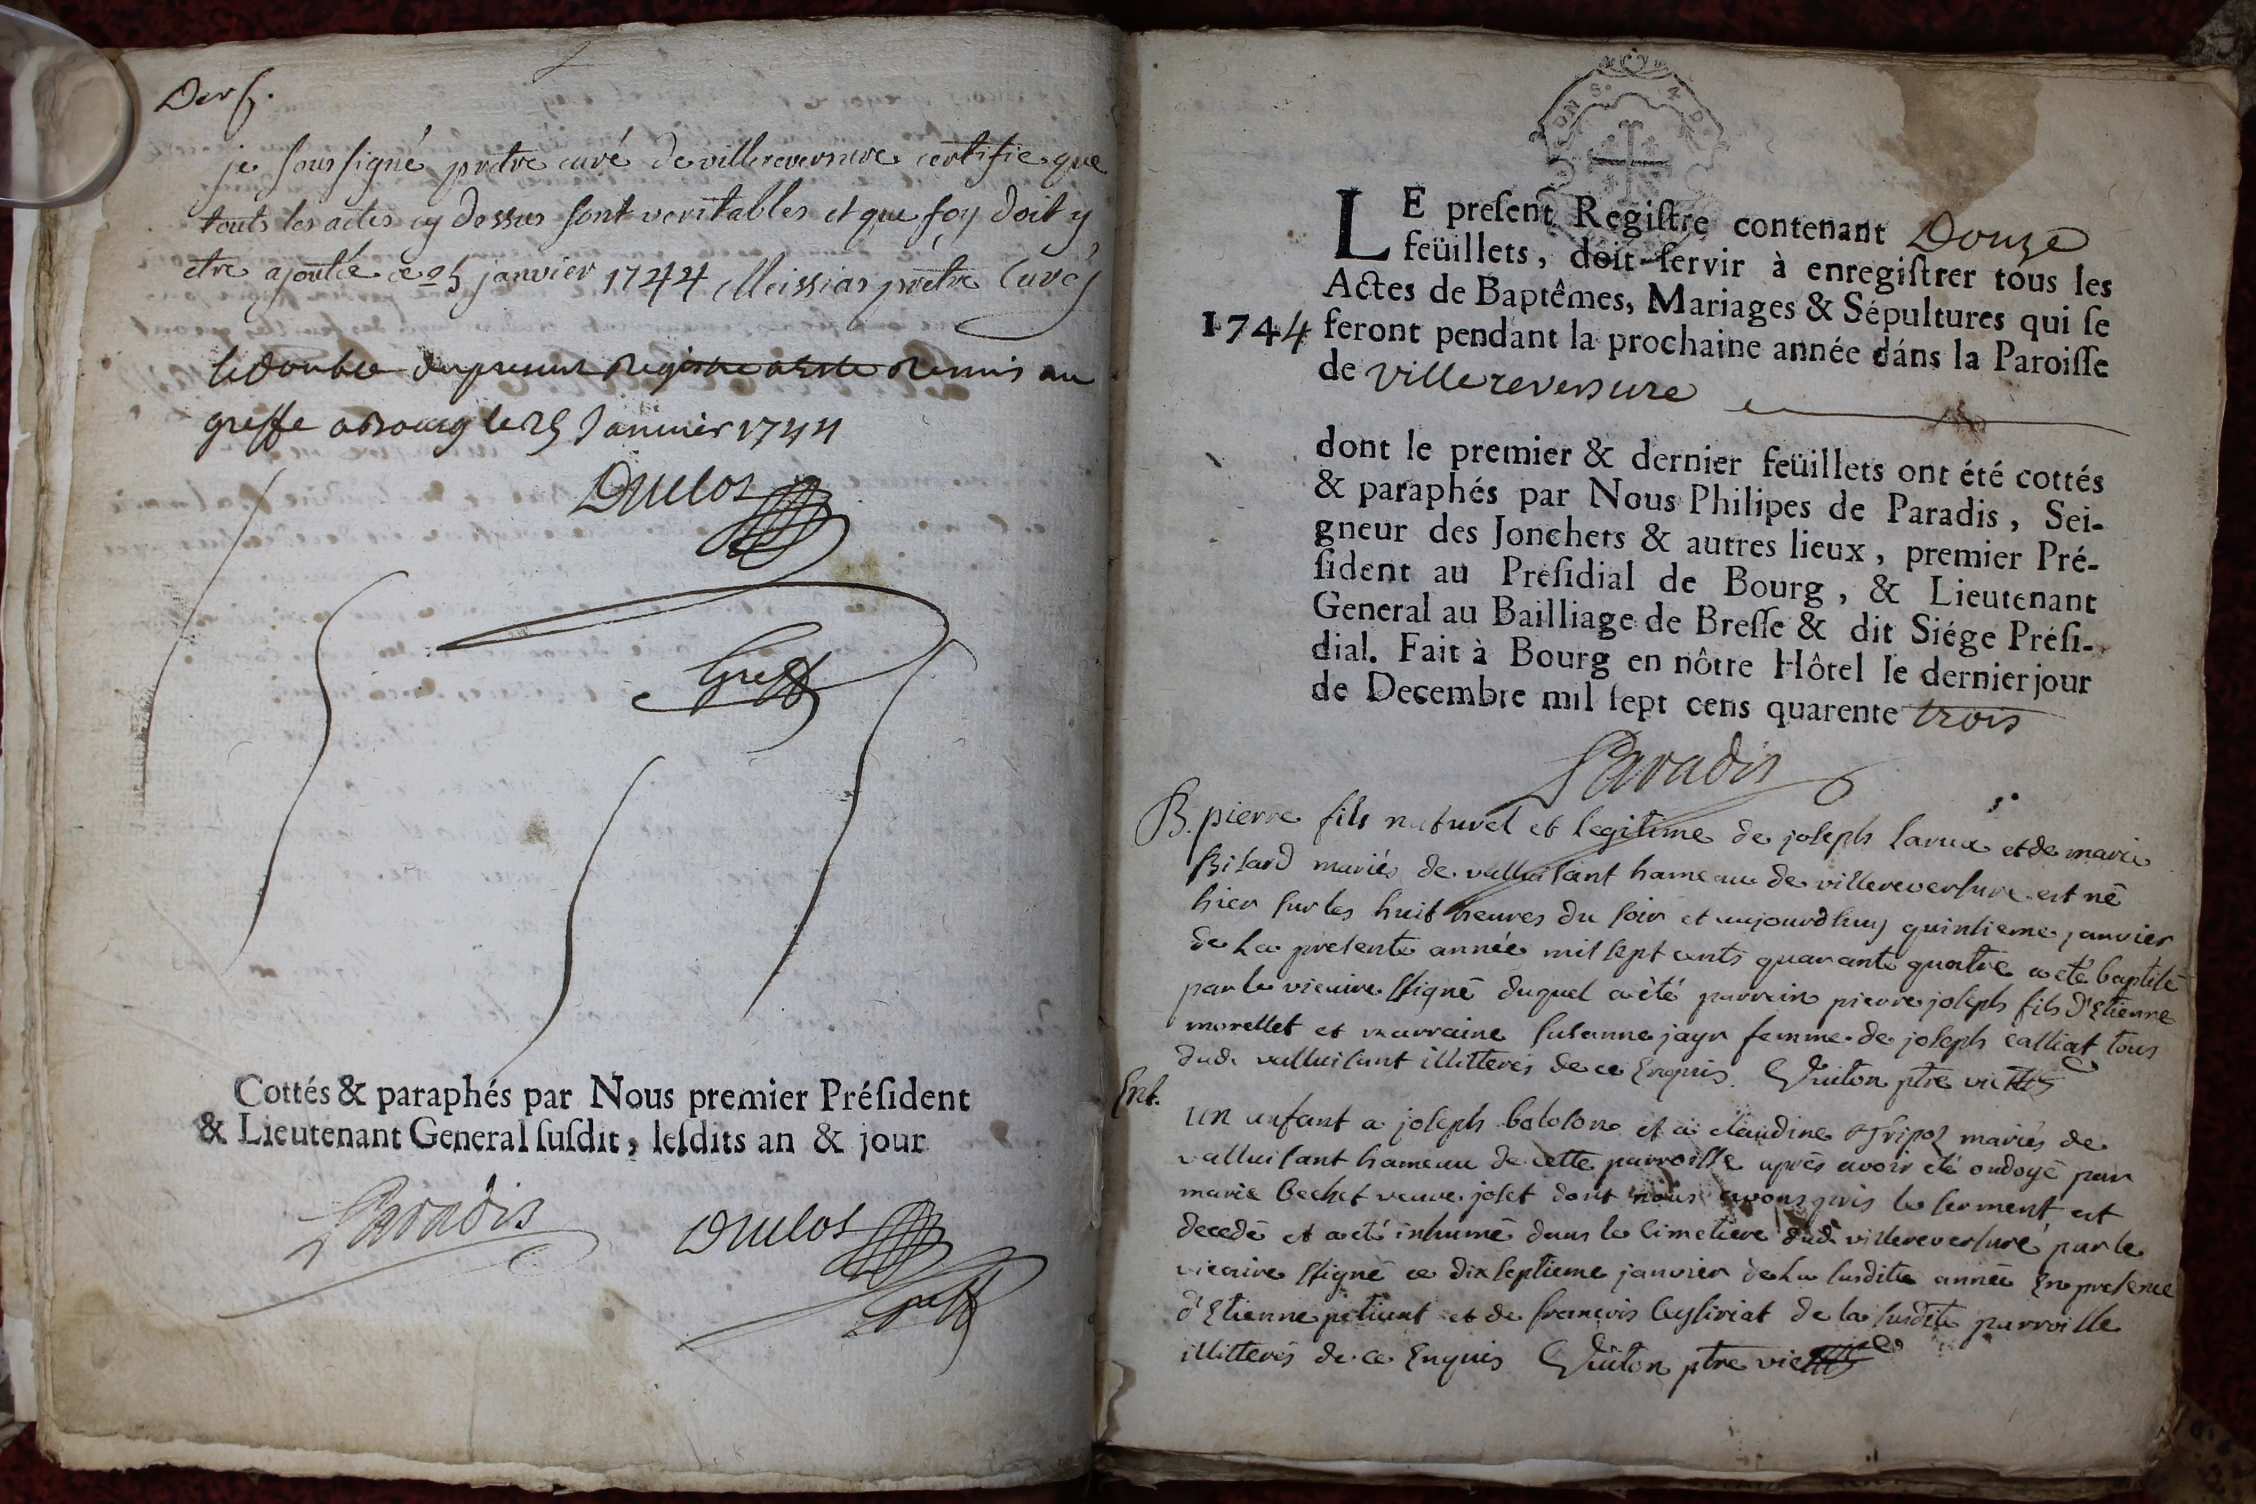 Der f.
je soussigné prêtre curé de villereversure certifie que
touts les actes cy dessus sont veritables et que foy doit y
etre ajoutée ce 25 janvier 1744 Meissias prêtre Curé
le double du present Registre a este Remis au
greffe a Bourg le 25 Janvier 1744
Duclos
Greff
Cottés & paraphés par Nous premier Préſident
& Lieutenant General ſuſdit, leſdits an & jour
Paradis Duclos
Greff
LE preſent Regiſtre contenant Douze
feüillets, doit ſervir à enregiſtrer tous les
Actes de Baptêmes, Mariages & Sépultures qui ſe
1744 feront pendant la prochaine année dáns la Paroiſſe
de Villereversure
dont le premier & dernier feüillets ont été cottés
& paraphés par Nous Philipes de Paradis, Sei-
gneur des Jonchets & autres lieux, premier Pré-
ſident au Preſidial de Bourg, & Lieutenant
General au Bailliage de Breſſe & dit Siége Préſi-
dial. Fait à Bourg en nôtre Hôtel le dernier jour
de Decembre mil ſept cens quarente trois
Paradis
B. pierre fils naturel et legitime de joseph et de marie
mariés de valluisant hameau de villereversure est né
hier sur les huit heures du soir et aujourdhuy quinsieme janvier
de La presente année mil sept cents quarante quatre a eté baptisé
par le vicaire ssigné duquel a été parrain pierre joseph fils d'Etienne
morellet et marraine susanne jayr femme de joseph calliat tous
dud. valluisant illitterés de ce Enquis. Guiton ptre vic
Enf.
un enfant a joseph bolosone et a claudine mariés de
valluisant hameau de cette parroisse après avoir eté ondoyé par
marie bechet veuve joset dont nous avons pris le serment est
decedé et a eté inhumé dans le Cimetiere dud. villereversure par le
vicaire ssigné ce dix septieme janvier de La susdite année En presence
d'Etienne et de françois de la susdite parroisse
illitterés de ce Enquis Guiton ptre vic